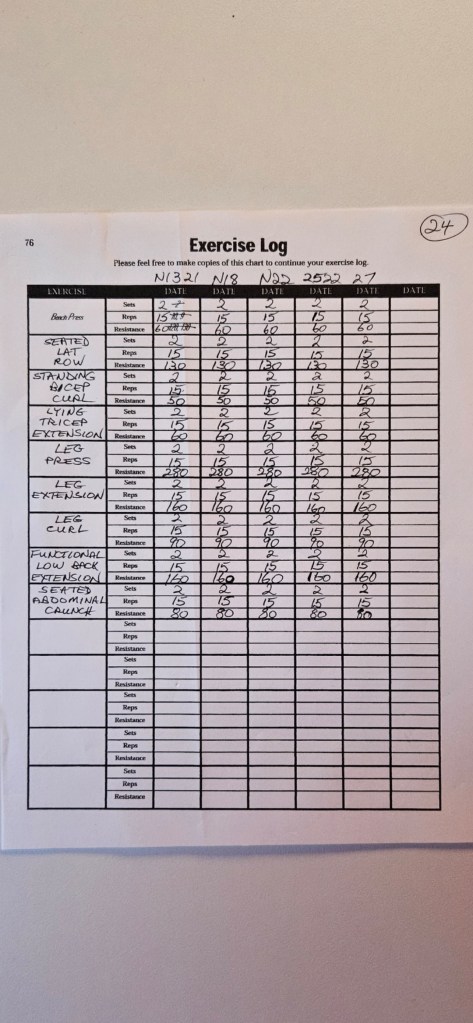 24
76
Exercise Log
Please feel free to make copies of this chart to continue your exercise log.
N1321 N18 N22 2522 27
EXERCISE DATE DATE DATE DATE DATE DATE
Bench Press Sets 2 2 2 2 2
Reps 15 15 15 15 15
Resistance 60 60 60 60 60
SEATED Sets 2 2 2 2 2
LAT Reps 15 15 15 15 15
ROW Resistance 130 130 130 130 130
STANDING Sets 2 2 2 2 2
BICEP Reps 15 15 15 15 15
CURL Resistance 50 50 50 50 50
LYING Sets 2 2 2 2 2
TRICEP Reps 15 15 15 15 15
EXTENSION Resistance 60 60 60 60 60
LEG Sets 2 2 2 2 2
PRESS Reps 15 15 15 15 15
Resistance 280 280 280 280 280
LEG Sets 2 2 2 2 2
EXTENSION Reps 15 15 15 15 15
Resistance 160 160 160 160 160
LEG Sets 2 2 2 2 2
CURL Reps 15 15 15 15 15
Resistance 90 90 90 90 90
FUNCTIONAL Sets 2 2 2 2 2
LOW BACK Reps 15 15 15 15 15
EXTENSION Resistance 160 160 160 160 160
SEATED Sets 2 2 2 2 2
ABDOMINAL Reps 15 15 15 15 15
CRUNCH Resistance 80 80 80 80 80
Sets
Reps
Resistance
Sets
Reps
Resistance
Sets
Reps
Resistance
Sets
Reps
Resistance
Sets
Reps
Resistance